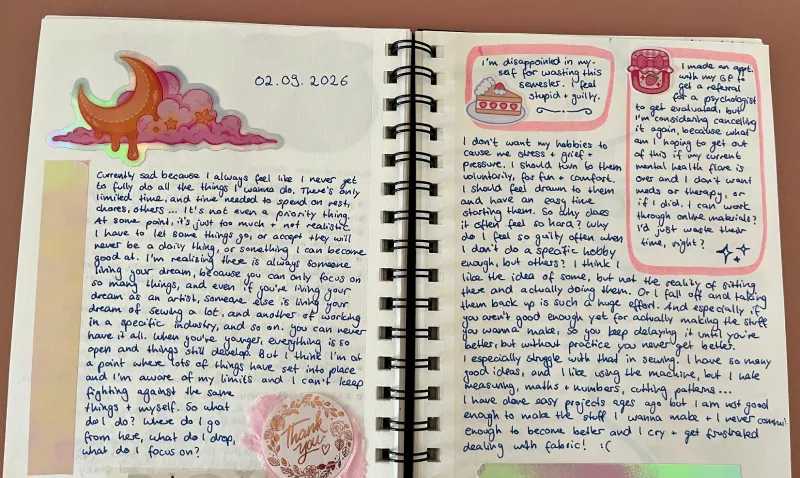 02.09.2026
Currently sad because I always feel like I never get
to fully do all the things I wanna do. There's only
limited time, and time needed to spend on rest,
chores, others ... It's not even a priority thing.
At some point, it's just too much + not realistic.
I have to let some things go, or accept they will
never be a daily thing, or something I can become
good at. I'm realising there is always someone
living your dream, because you can only focus on
so many things, and even if you're living your
dream as an artist, someone else is living your
dream of sewing a lot, and another of working
in a specific industry, and so on. you can never
have it all. When you're younger, everything is so
open and things still develop. But I think I'm at
a point where lots of things have set into place
and I'm aware of my limits and I can't keep
fighting against the same
things + myself. So what
do I do? Where do I go
from here, what do I drop,
what do I focus on?
thank
you
I'm disappointed in my-
self for wasting this
semester. I feel
stupid + guilty.
I made an appt.
with my GP to
get a referal
for a psychologist
to get evaluated, but
I'm considering cancelling
it again, because what
am I hoping to get out
of this if my current
mental health flare is
over and I don't want
meds or therapy, or
if I did, I can work
through online materials?
I'd just waste their
time, right?
I don't want my hobbies to
cause me stress + grief +
pressure. I should turn to them
voluntarily, for fun + comfort.
I should feel drawn to them
and have an easy time
starting them. So why does
it often feel so hard? Why
do I feel so guilty often when
I don't do a specific hobby
enough, but others? I think I
like the idea of some, but not the reality of sitting
there and actually doing them. Or I fall off and taking
them back up is such a huge effort. And especially if
you aren't good enough yet for actually making the stuff
you wanna make, so you keep delaying it until you're
better, but without practice you never get better.
I especially struggle with that in sewing. I have so many
good ideas, and I like using the machine, but I hate
measuring, maths + numbers, cutting patterns...
I have done easy projects ages ago but I am not good
enough to make the stuff I wanna make + I never commit
enough to become better and I cry + get frustrated
dealing with fabric! :(